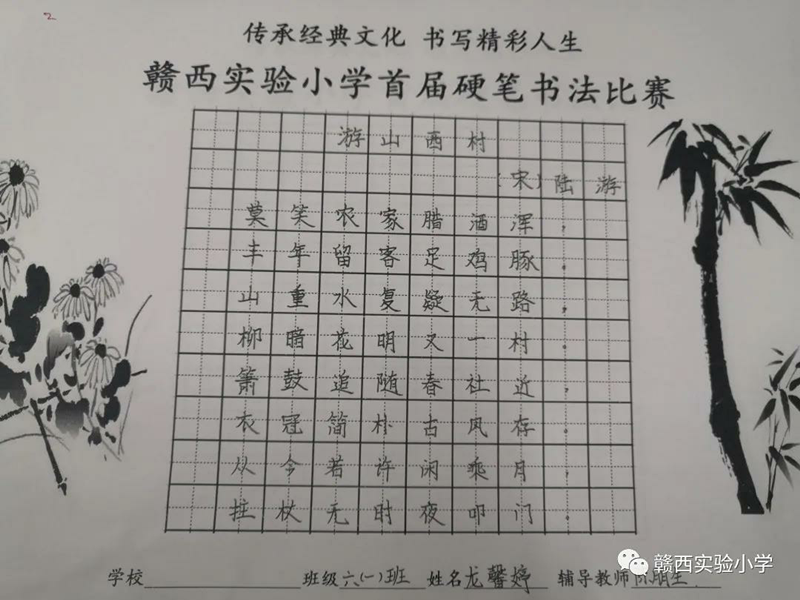 2
传承经典文化 书写精彩人生
赣西实验小学首届硬笔书法比赛
游山西村
(宋)陆游
莫笑农家腊酒浑,
丰年留客足鸡豚。
山重水复疑无路,
柳暗花明又一村。
箫鼓追随春社近,
衣冠简朴古风存。
从今若许闲乘月,
拄杖无时夜叩门。
学校 班级六(一)班 姓名龙馨婷 辅导教师
赣西实验小学